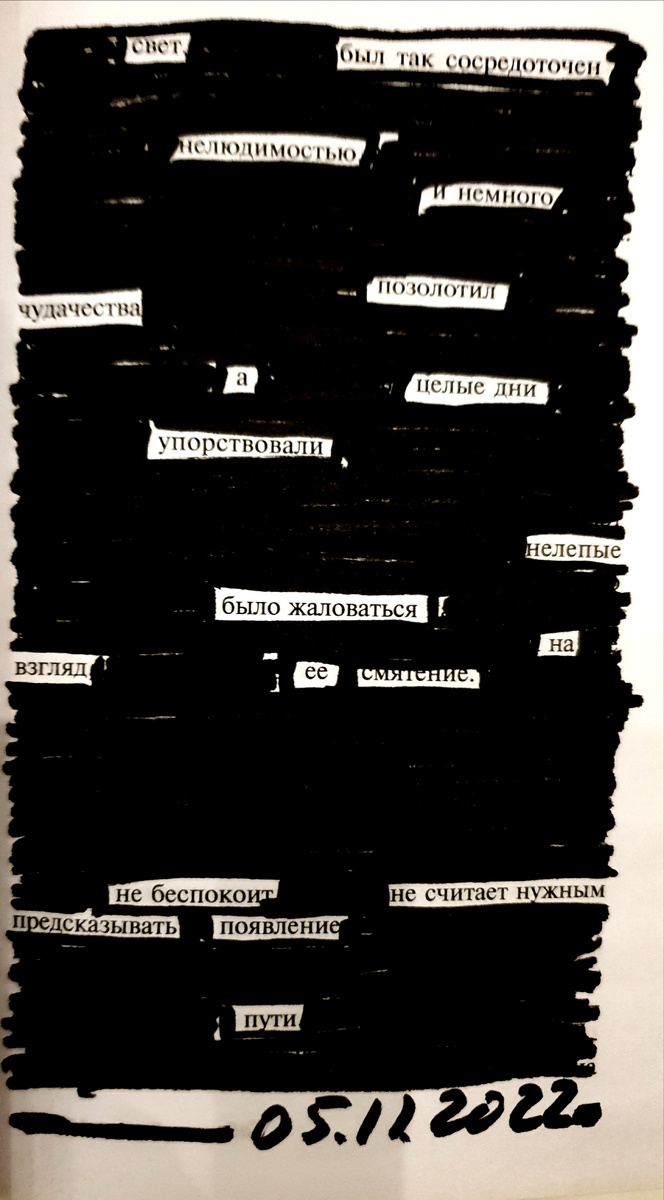 свет, был так сосредоточен
нелюдимостью
и немного
позолотил
чудачества
а целые дни
упорствовали
нелепые
было жаловаться
на
взгляд ее смятение.
не беспокоит не считает нужным
предсказывать появление
пути
05.11.2022